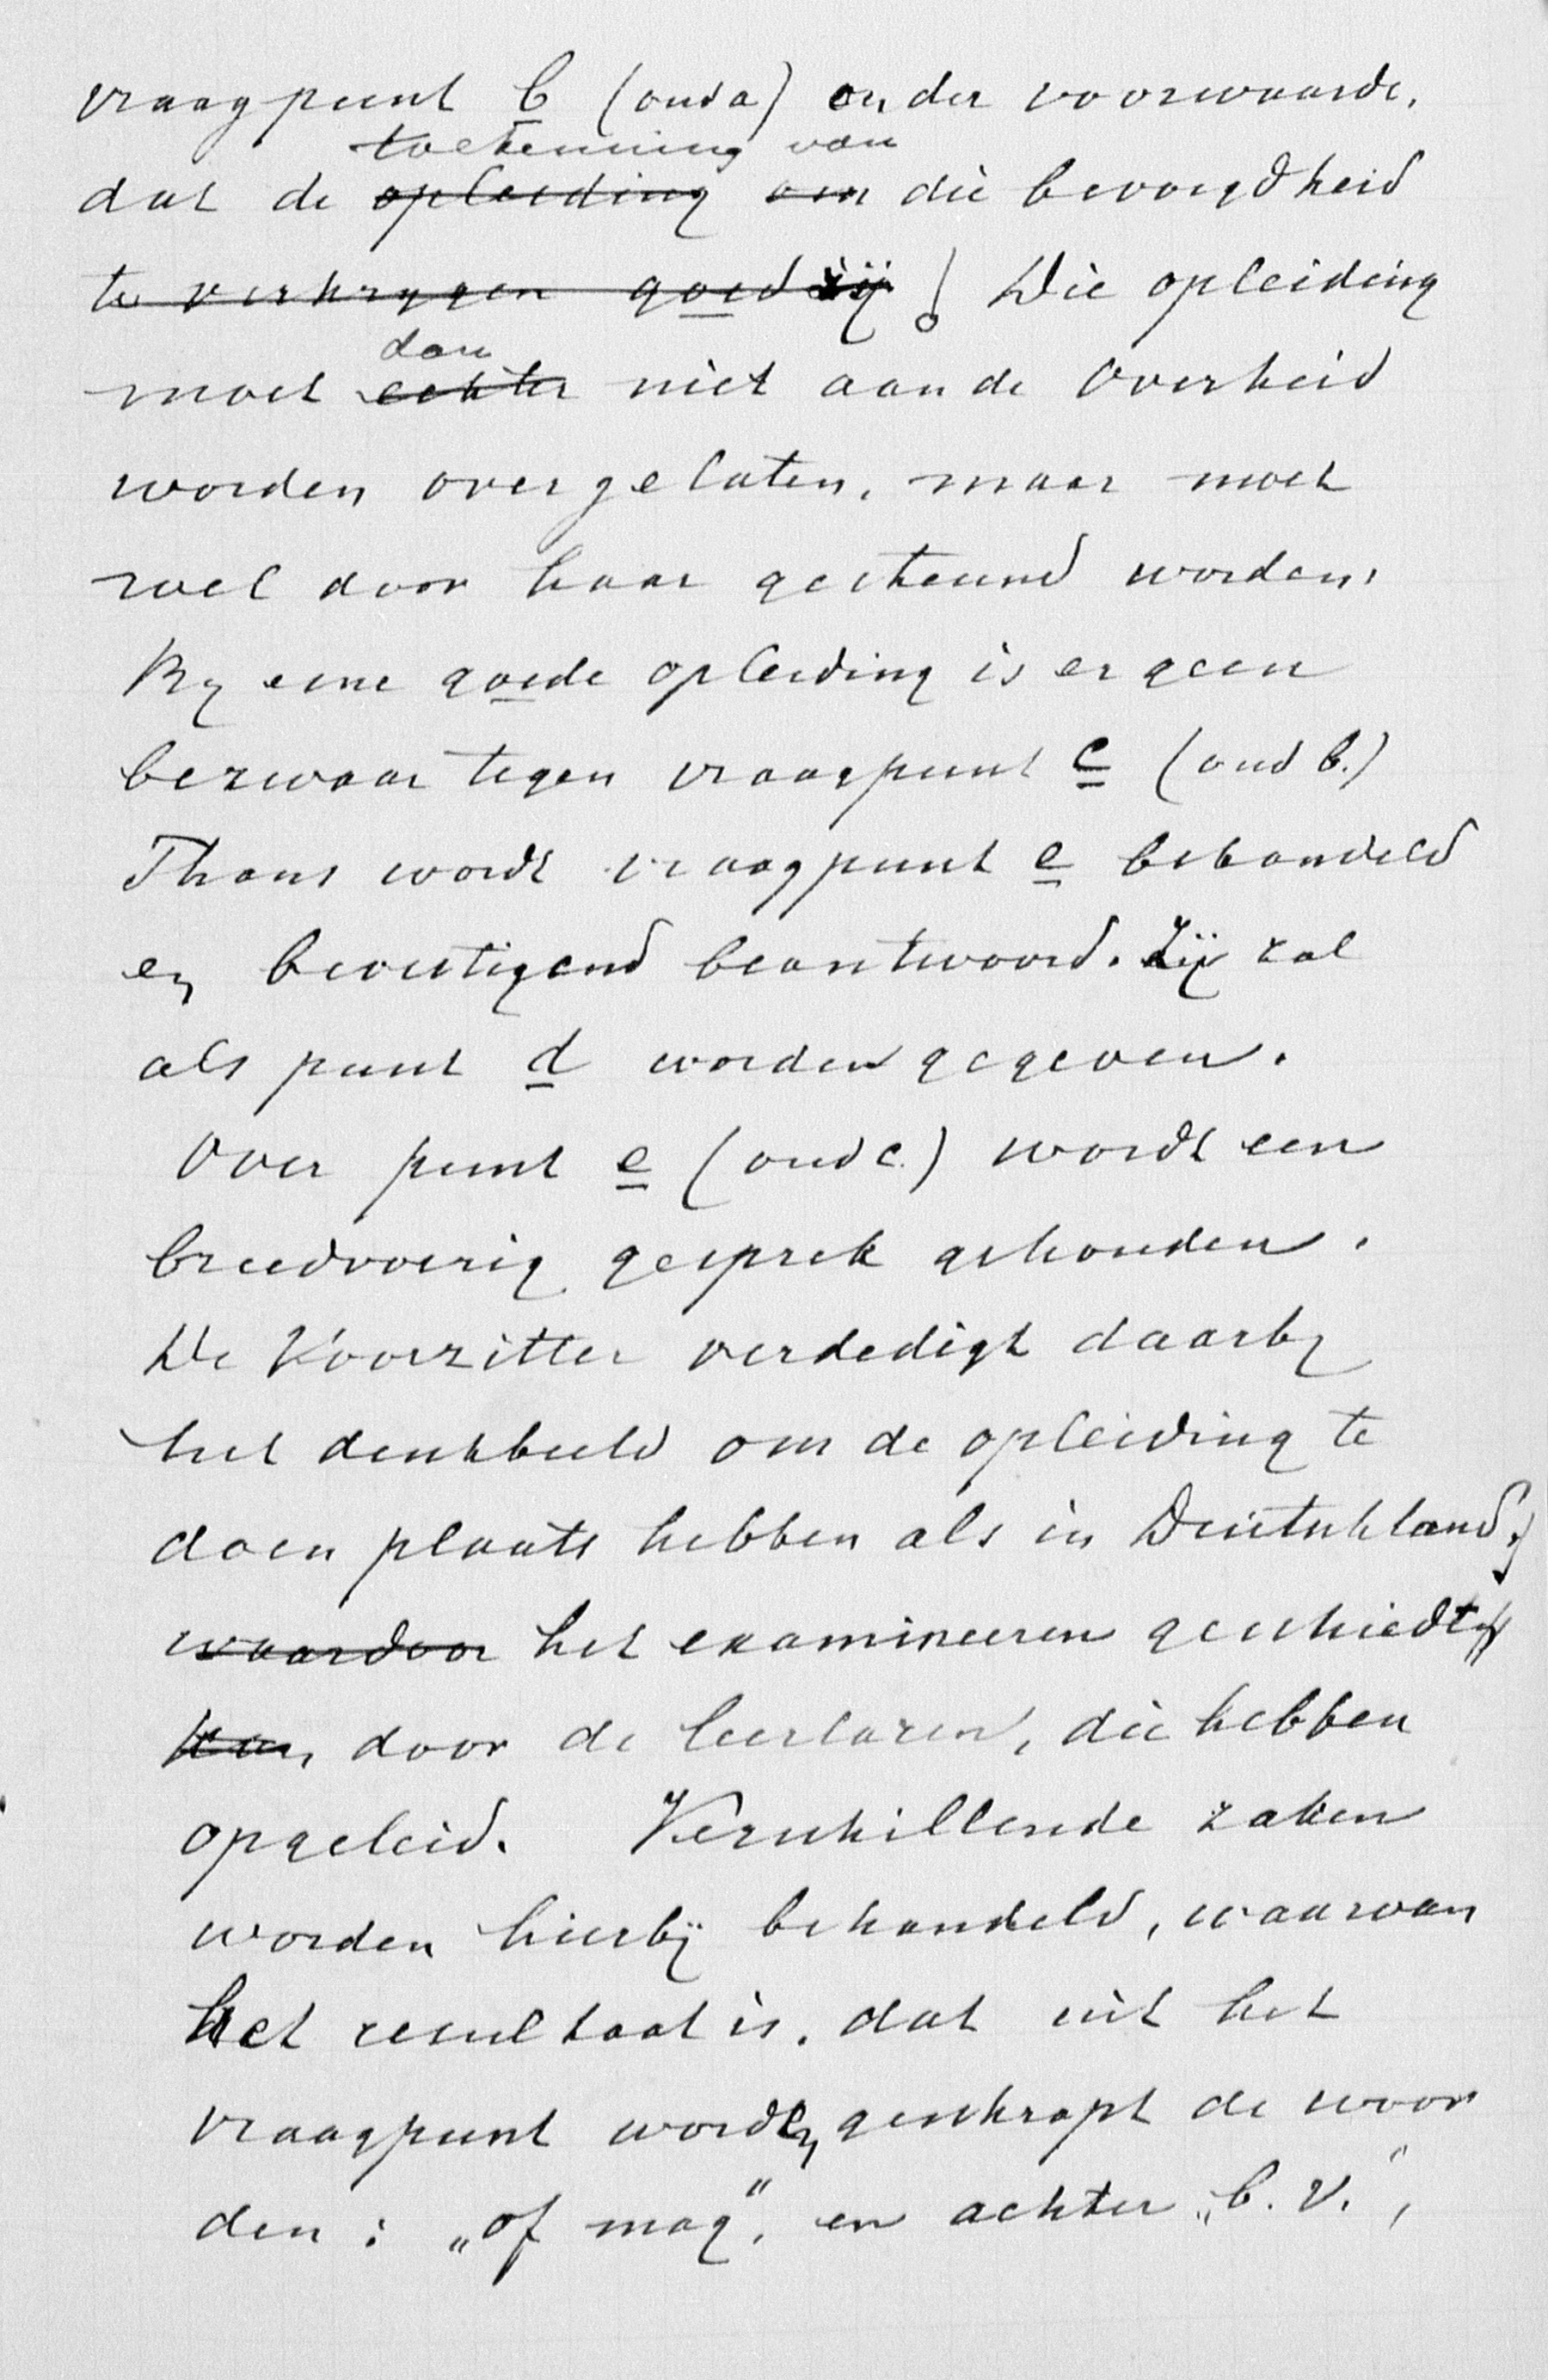 vraagpunt b (oud a) onder voorwaarde,
toekenning van
dat de opleiding om die bevoegdheid
te verkrygen goed zij! Die opleiding
dan
moet echter niet aan de Overheid
worden overgelaten, maar moet
wel door haar gesteund worden.
By eene goede opleiding is er geen
bezwaar tegen vraagpunt c (oud b.)
Thans wordt vraagpunt e behandeld
en bevestigend beantwoord. Zij zal
als punt d worden gegeven.
Over punt e (oud c.) wordt een
breedvoerig gesprek gehouden.
De Voorzitter verdedigt daarby
het denkbeeld om de opleiding te
doen plaats hebben als in Duitschland;
waardoor het examineeren geschiedt
kan door de leerlaren, die hebben
opgeleid. Verschillende zaken
worden hierbij behandeld, waarvan
het resultaat is, dat uit het
vraagpunt worden geschrapt de woor
den: „of mag", en achter „b.v.",